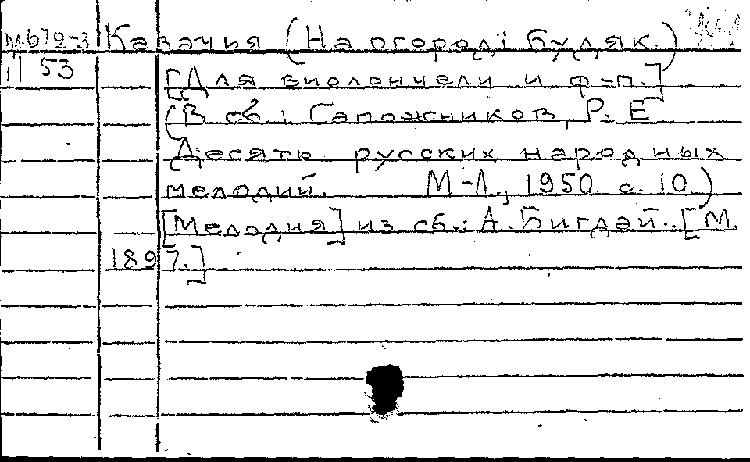 М672-3 Казачия (На огороді будяк.)
11 53 [Для виолончели и ф-п.]
(В сб.: Сапожников, Р. Е
Десять русских народных
мелодий. М-Л., 1950 с. 10.)
[Мелодия] из сб.: А. Бигдай. [М.
1897.]